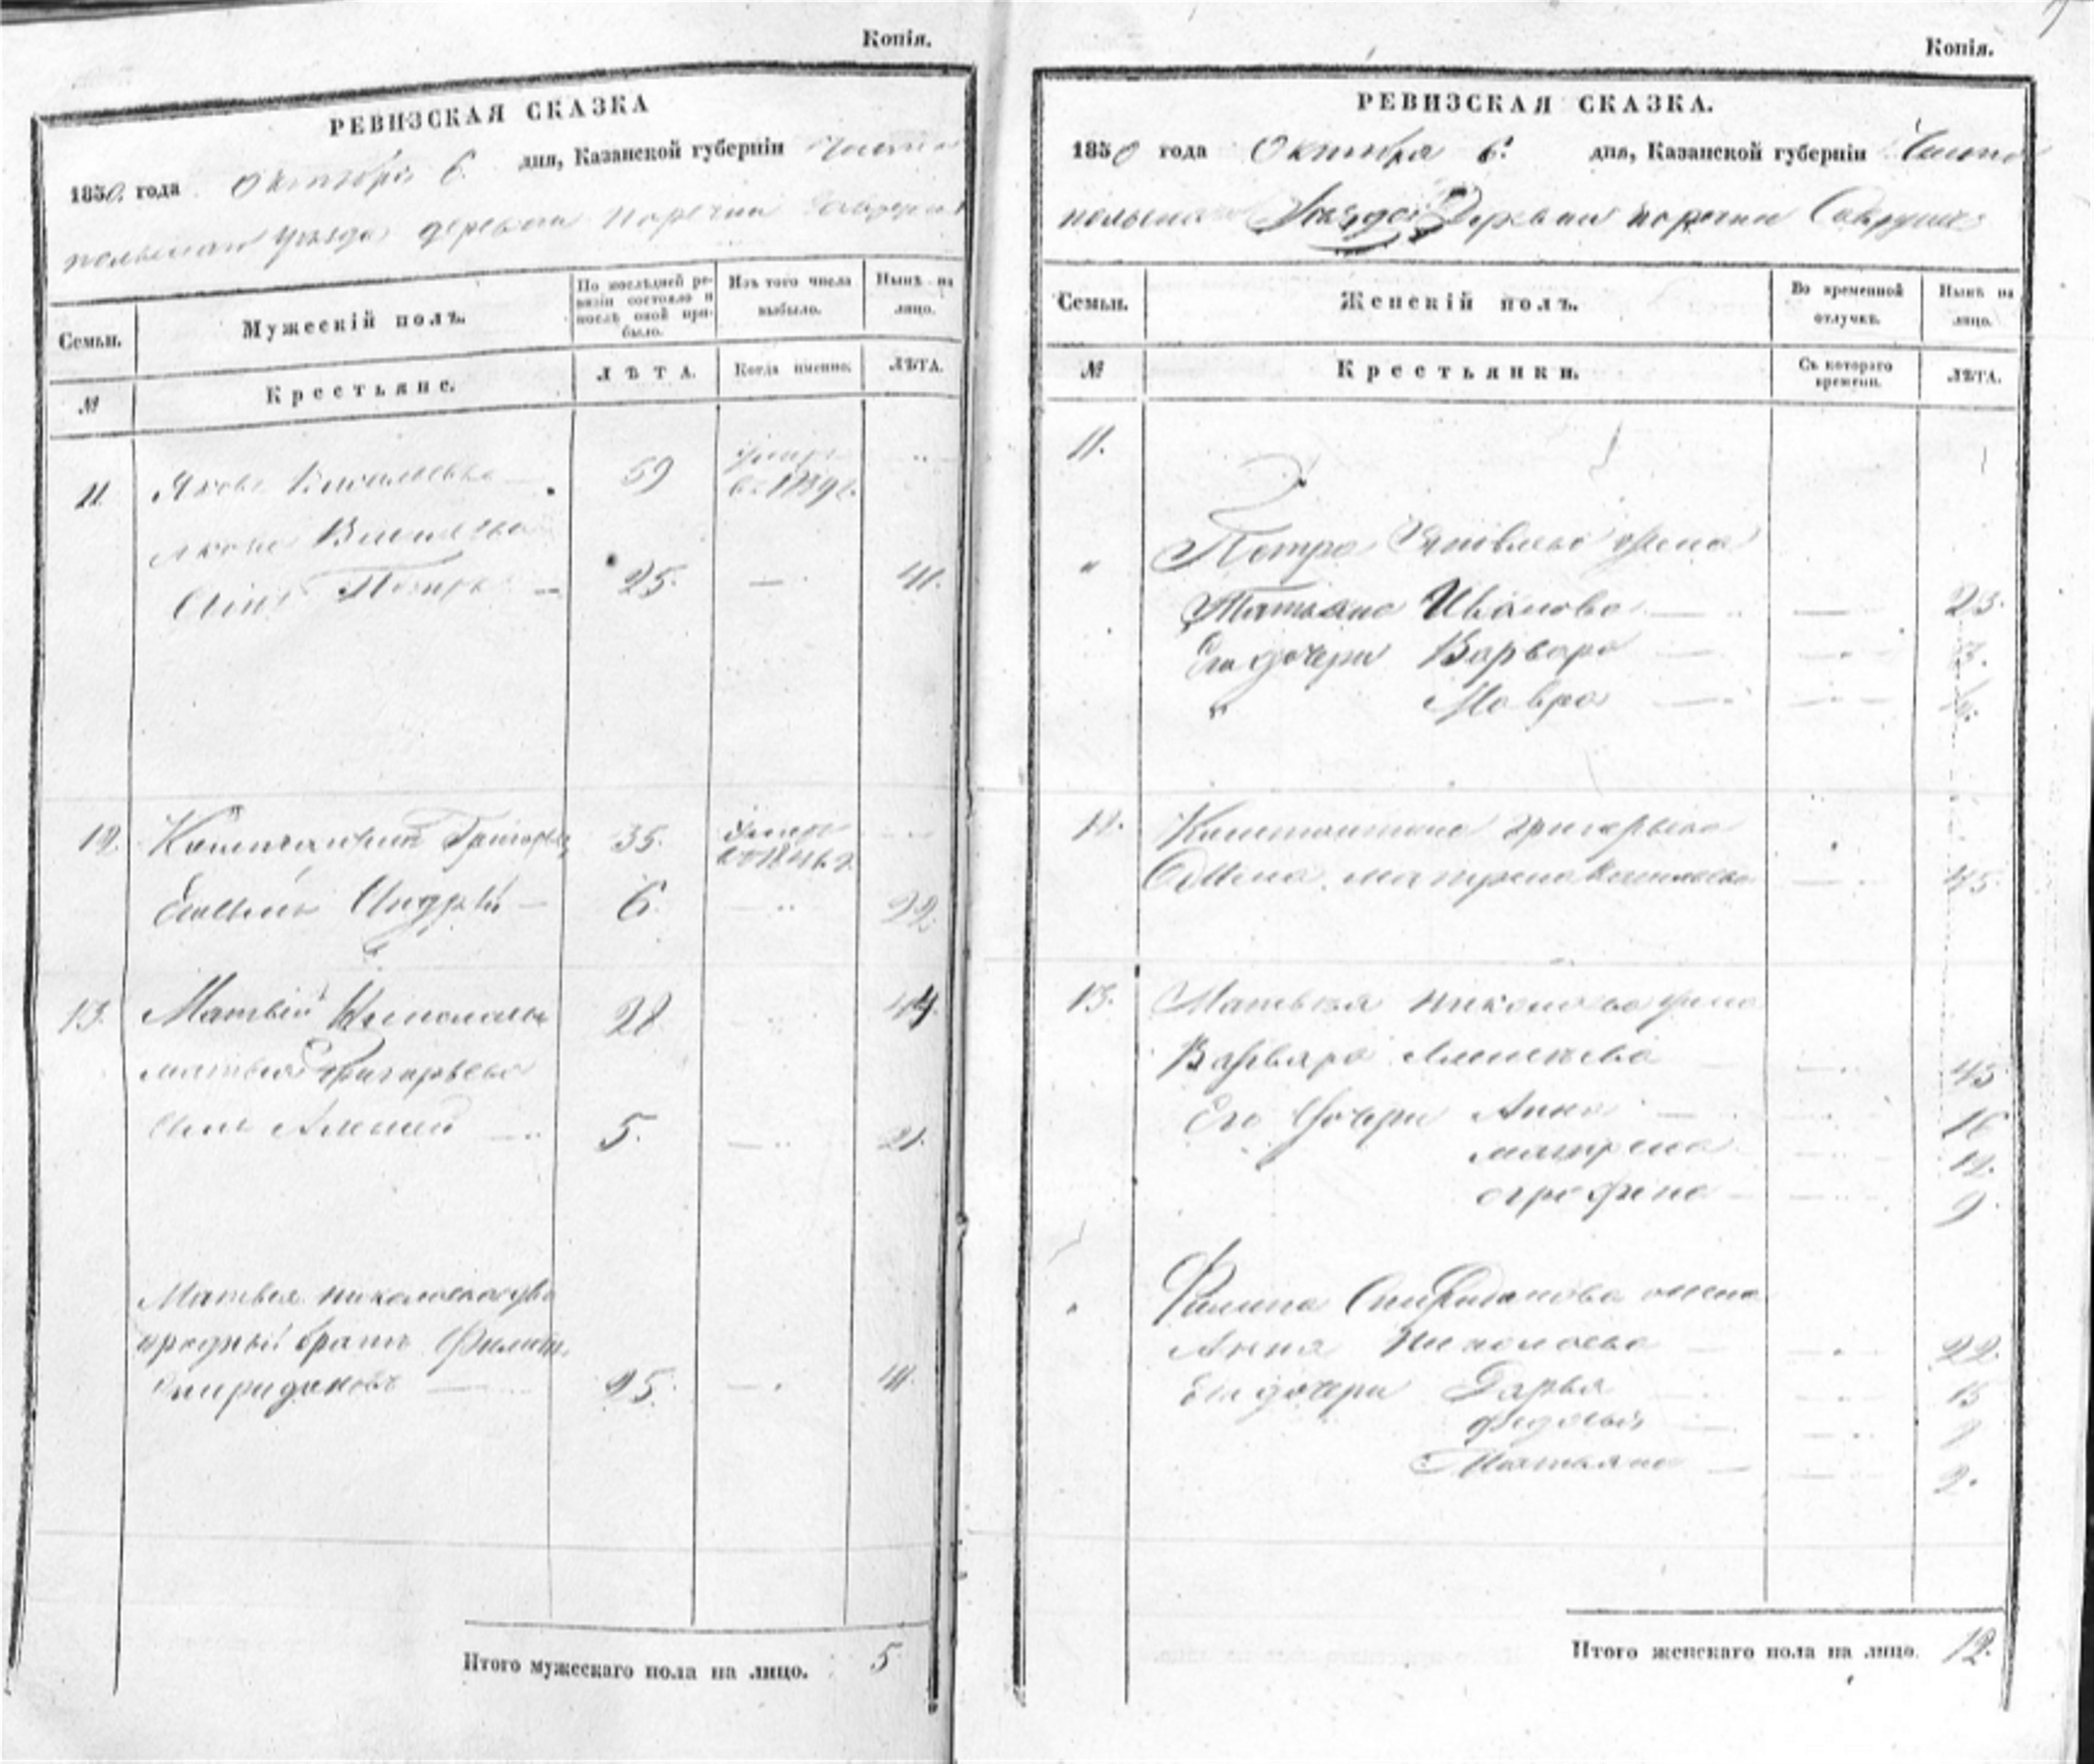 Копія.
РЕВИЗСКАЯ СКАЗКА
1850 года Октября 6 дня, Казанской губерніи Чисто
польскаго уезда деревни Поречни
Семьи.
Мужескій полъ.
По послѣдней ре-
визіи состояло и
послѣ оной при-
было.
Изъ того числа
выбыло.
Нынѣ на
лицо.
№
Крестьяне.
ЛѢТА.
Когда именно.
ЛѢТА.
11. Яковъ Васильевъ 59 умеръ
въ 1839 г.
Якова Васильева
Сынъ Петръ 25. 41.
12. Константинъ Григорьевъ 35. умеръ
Андрей 6. 22.
13. Матвей Николаевъ 28 44
Матвея Григорьева
Сынъ Алексей 5. 21.
Матвея Николаева дво
юродный братъ Филипъ
Спиридоновъ 25. 41.
Итого мужескаго пола на лицо. 5
Копія.
РЕВИЗСКАЯ СКАЗКА.
1850 года Октября 6. дня, Казанской губерніи Чисто
польскаго Уезда Деревни поречни Саврушъ
Семьи.
Женскій полъ.
Во временной
отлучкѣ.
Нынѣ на
лицо.
№
Крестьянки.
Съ котораго
времени.
ЛѢТА.
11.
Петра Яковлева жена
Татьяна Иванова 23.
Его дочери Варвара 3.
" Мавра
12. Константина Григорьева
жена Матрена Васильева 45.
13. Матвея Николаева жена
Варвара Алексеева 45
Его дочери Анна 16
Матрена 12.
Аграфена 9.
Филипа Спиридонова жена
Анна Николаева 22.
Его дочери Дарья 15
Федосья
Татьяна 2.
Итого женскаго пола на лицо. 12.